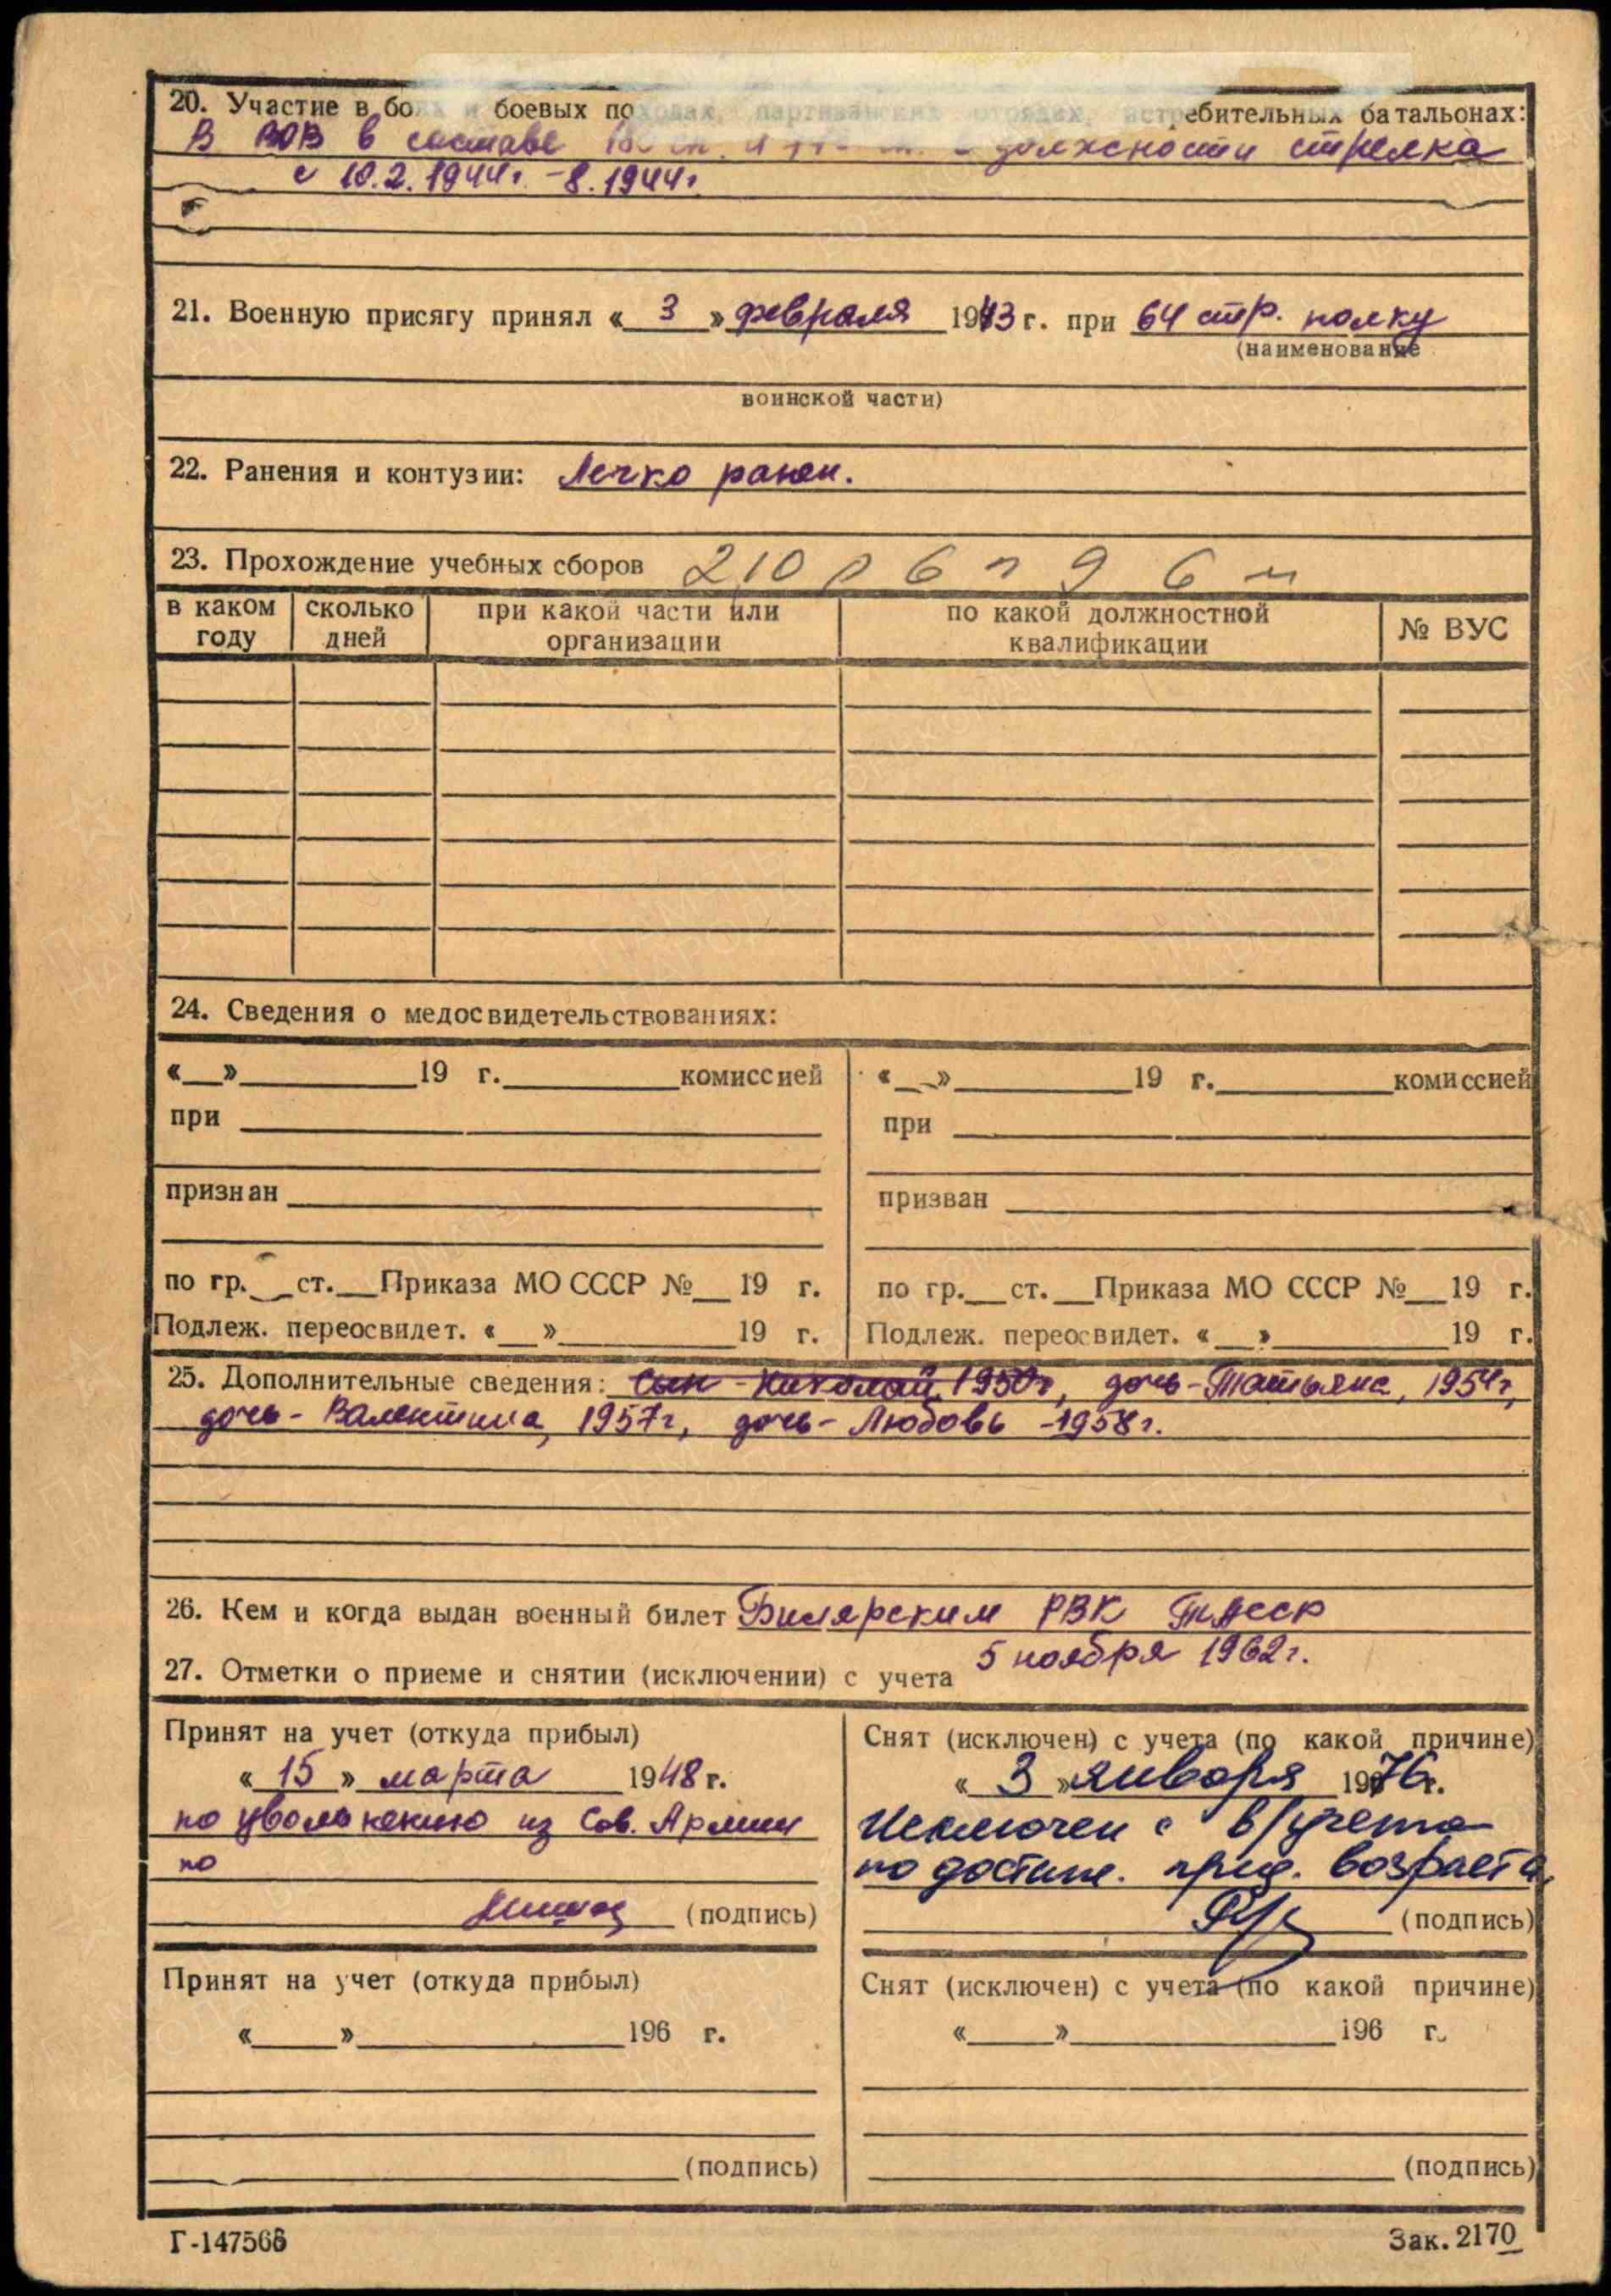 20. Участие в боях и боевых походах, партизанских отрядах, истребительных батальонах:
В ВОВ в составе должности стрелка
с 10.2.1944г. - 8.1944г.
21. Военную присягу принял « 3 » февраля 1943 г. при 64 стр. полку
(наименование
воинской части)
22. Ранения и контузии: Легко ранен.
23. Прохождение учебных сборов
в каком году сколько дней при какой части или организации по какой должностной квалификации № ВУС
24. Сведения о медосвидетельствованиях:
«__»__________19 г.__________комиссией «__»__________19 г.__________комиссией
при при
признан призван
по гр.__ст.__Приказа МО СССР №__19 г. по гр.__ст.__Приказа МО СССР №__19 г.
Подлеж. переосвидет. «__»__________19 г. Подлеж. переосвидет. «__»__________19 г.
25. Дополнительные сведения: Сын - Николай, 1950г, дочь - Татьяна, 1954г,
дочь - Валентина, 1957г, дочь - Любовь - 1958г.
26. Кем и когда выдан военный билет Билярским РВК ТАССР
5 ноября 1962г.
27. Отметки о приеме и снятии (исключении) с учета
Принят на учет (откуда прибыл) Снят (исключен) с учета (по какой причине)
« 15 » марта 1948 г. « 3 » января 1976 г.
по увольнению из Сов. Армии Исключен с в/учета
по по достиж. пред. возраста
(подпись) (подпись)
Принят на учет (откуда прибыл) Снят (исключен) с учета (по какой причине)
«____»__________196 г. «____»__________196 г.
(подпись) (подпись)
Г-147566 Зак. 2170